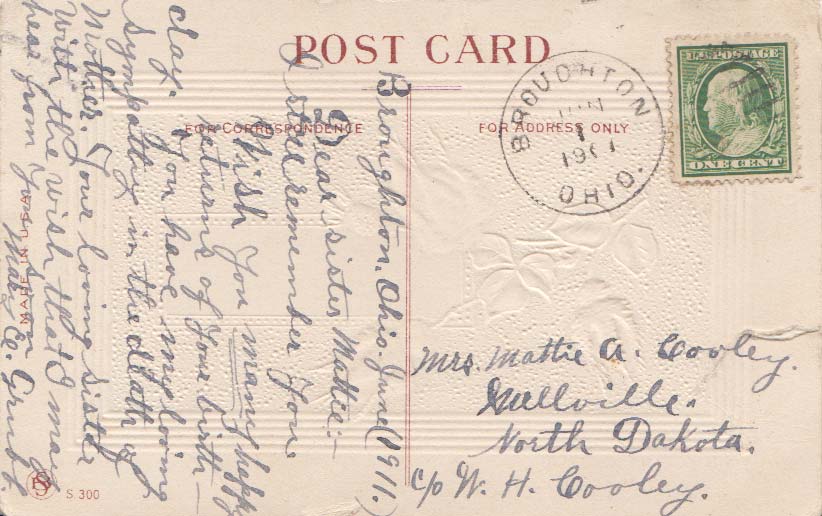 POST CARD
FOR CORRESPONDENCE
FOR ADDRESS ONLY
BROUGHTON
JUN
1
OHIO.
U.S. POSTAGE
ONE CENT
Broughton, Ohio. June (1911.)
Dear sister Mattie:-
I still remember You.
Wish You many happy
returns of Your birth-
day. You have my loving
sympathy in the death of
Mother. Your loving sister
With the wish that I may
hear from You soon
Mary E.
Mrs. Mattie A. Cooley.
North Dakota.
c/o W. H. Cooley.
MADE IN U.S.A.
S. 300